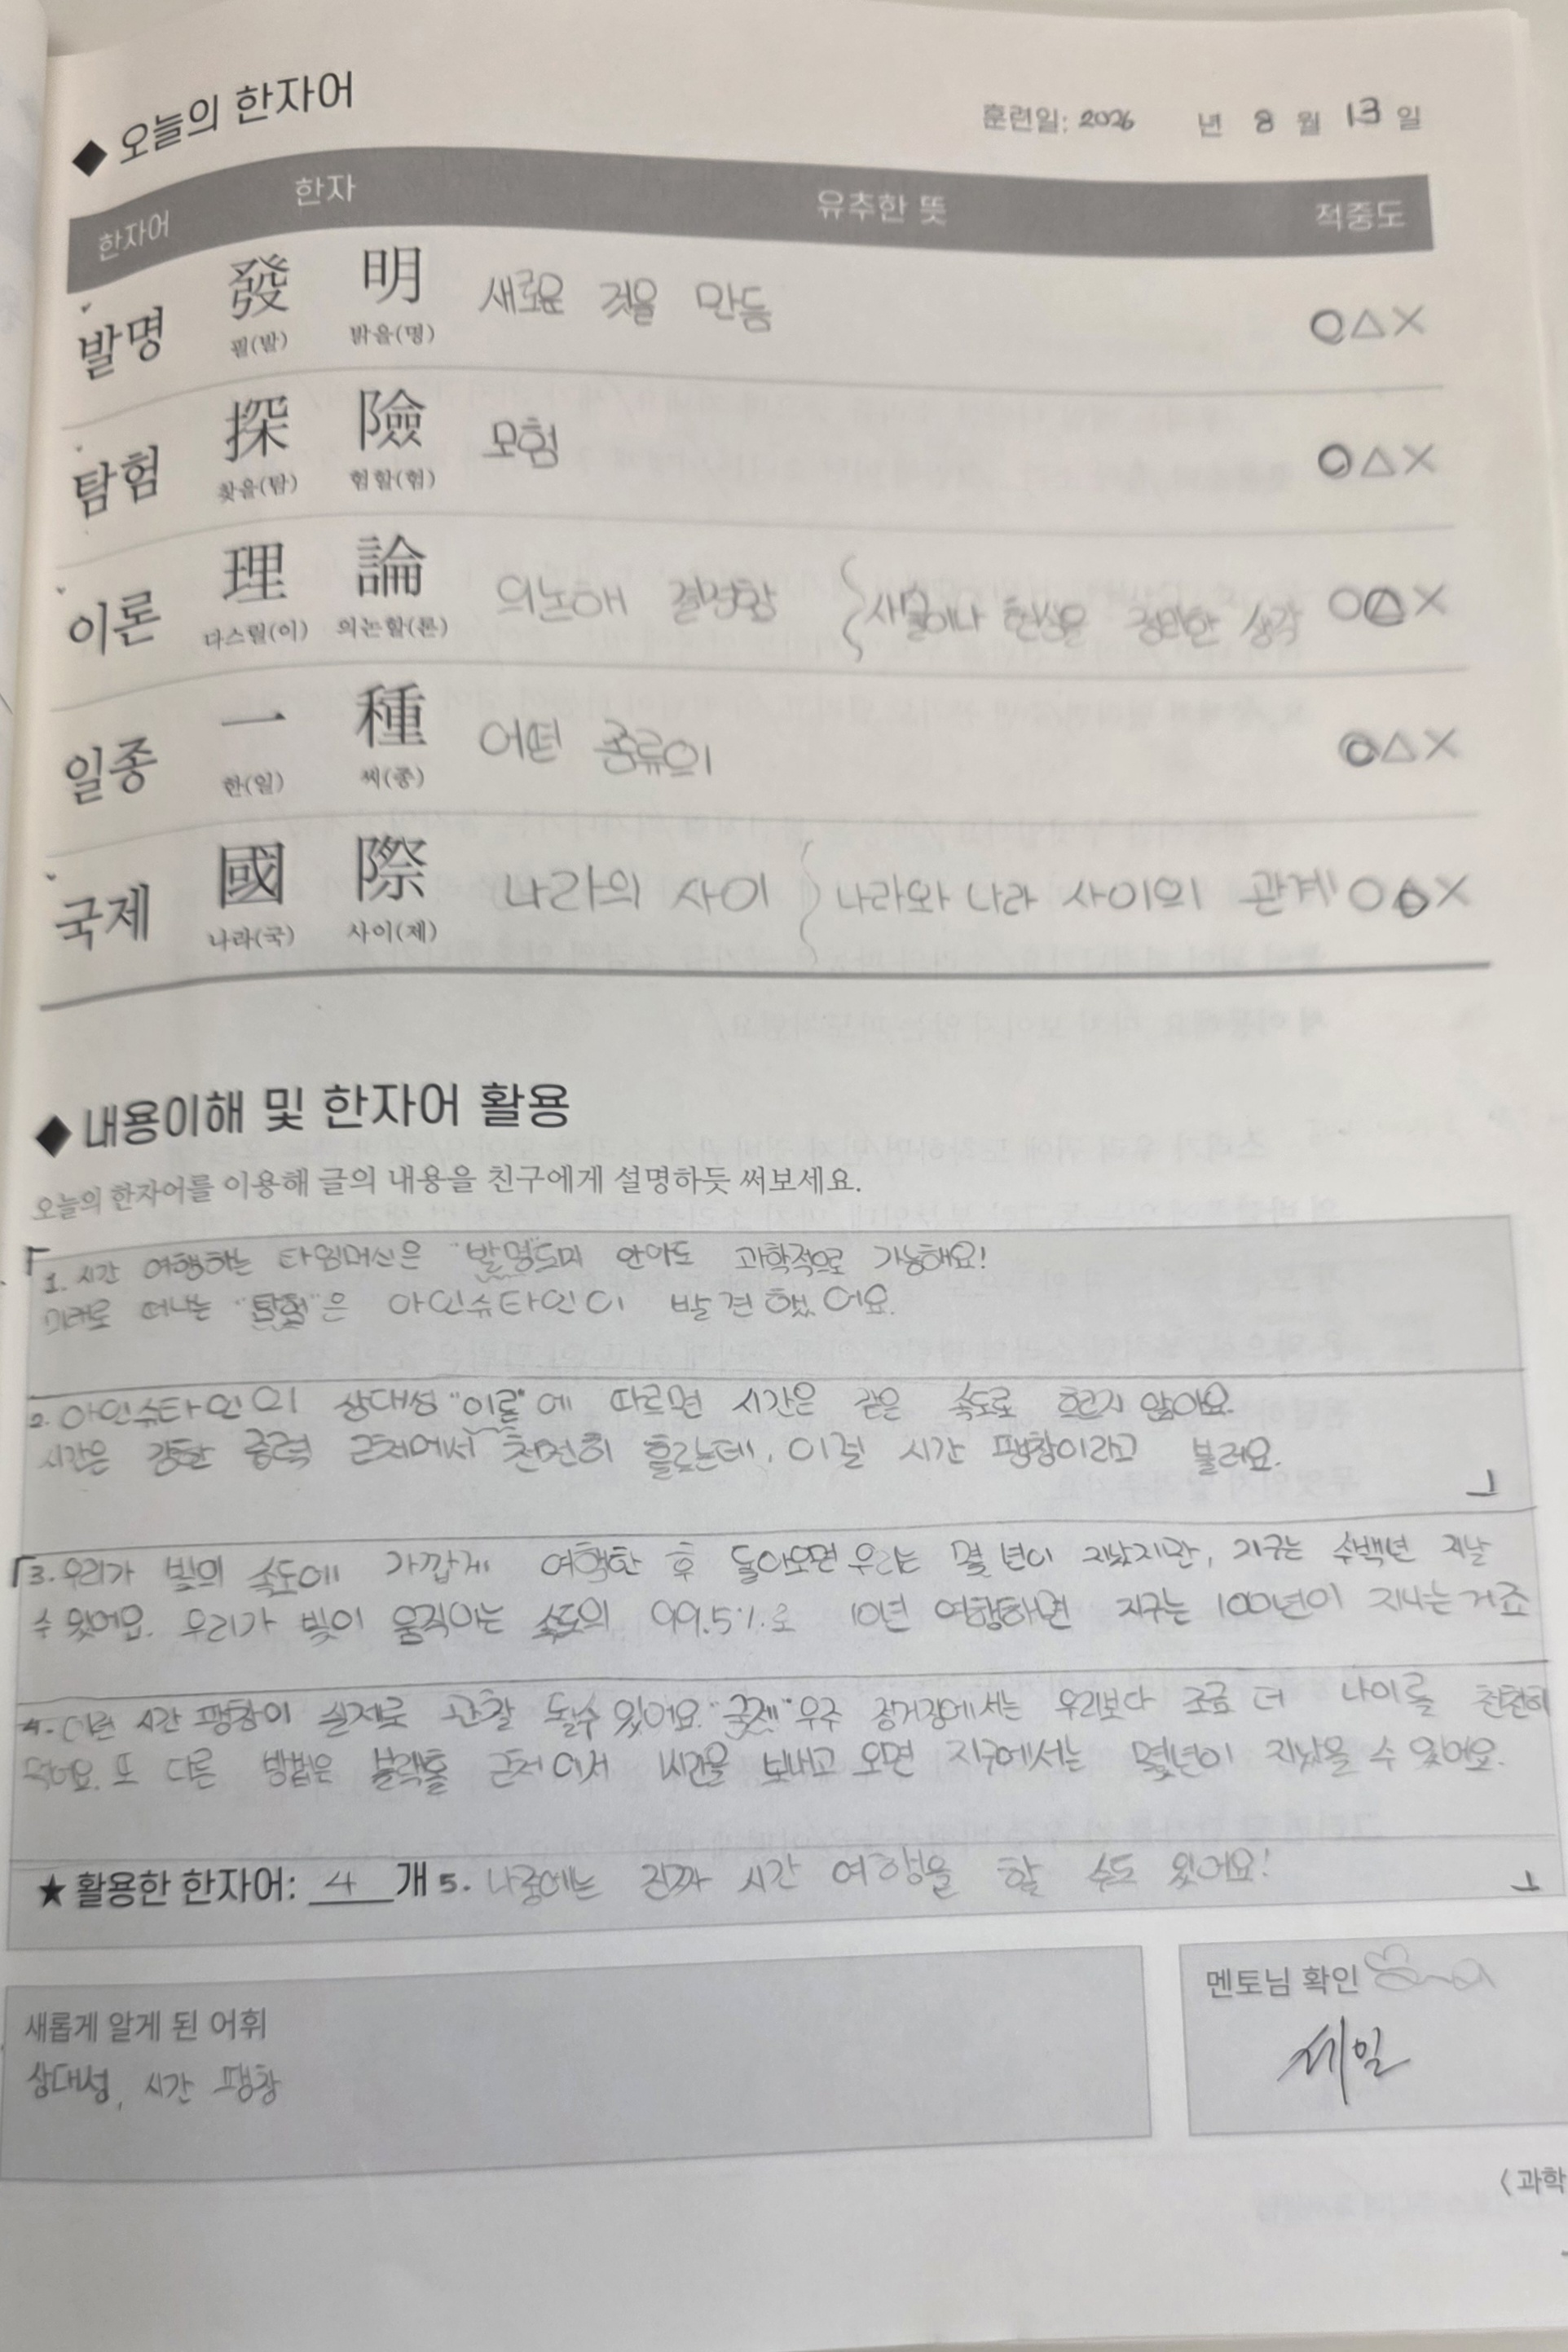 ◆ 오늘의 한자어
훈련일: 2026 년 8 월 13 일
한자어 한자 유추한 뜻 적중도
발명 發 明 새로운 것을 만듬 ○△×
필(발) 밝을(명)
탐험 探 險 모험 ○△×
찾을(탐) 험할(험)
이론 理 論 의논해 결정함 사물이나 현상을 정의한 생각 ○△×
다스릴(이) 의논할(론)
일종 一 種 어떤 종류의 ○△×
한(일) 씨(종)
국제 國 際 나라의 사이 나라와 나라 사이의 관계 ○△×
나라(국) 사이(제)
◆ 내용이해 및 한자어 활용
오늘의 한자어를 이용해 글의 내용을 친구에게 설명하듯 써보세요.
「1. 시간 여행하는 타임머신은 "발명되지 안아도 과학적으로 가능해요!
미래로 떠나는 "탐험"은 아인슈타인이 발견했어요.
2. 아인슈타인의 상대성 "이론"에 따르면 시간은 같은 속도로 흐르지 않아요.
시간은 강한 중력 근처에서 천천히 흐르는데, 이걸 시간 팽창이라고 불러요. 」
「3. 우리가 빛의 속도에 가깝게 여행한 후 돌아오면 우리는 몇 년이 지났지만, 지구는 수백년 지날
수 있어요. 우리가 빛이 움직이는 속도의 99.5%로 10년 여행하면 지구는 100년이 지나는 거죠
4. 이런 시간 팽창이 실제로 관찰 될수 있어요. "국제" 우주 정거장에서는 우리보다 조금 더 나이를 천천히
먹어요. 또 다른 방법은 블랙홀 근처에서 1시간을 보내고 오면 지구에서는 몇년이 지났을 수 있어요.
★ 활용한 한자어: 4 개 5. 나중에는 진짜 시간 여행을 할 수도 있어요! 」
새롭게 알게 된 어휘
상대성, 시간 팽창
멘토님 확인
세일
〈과학